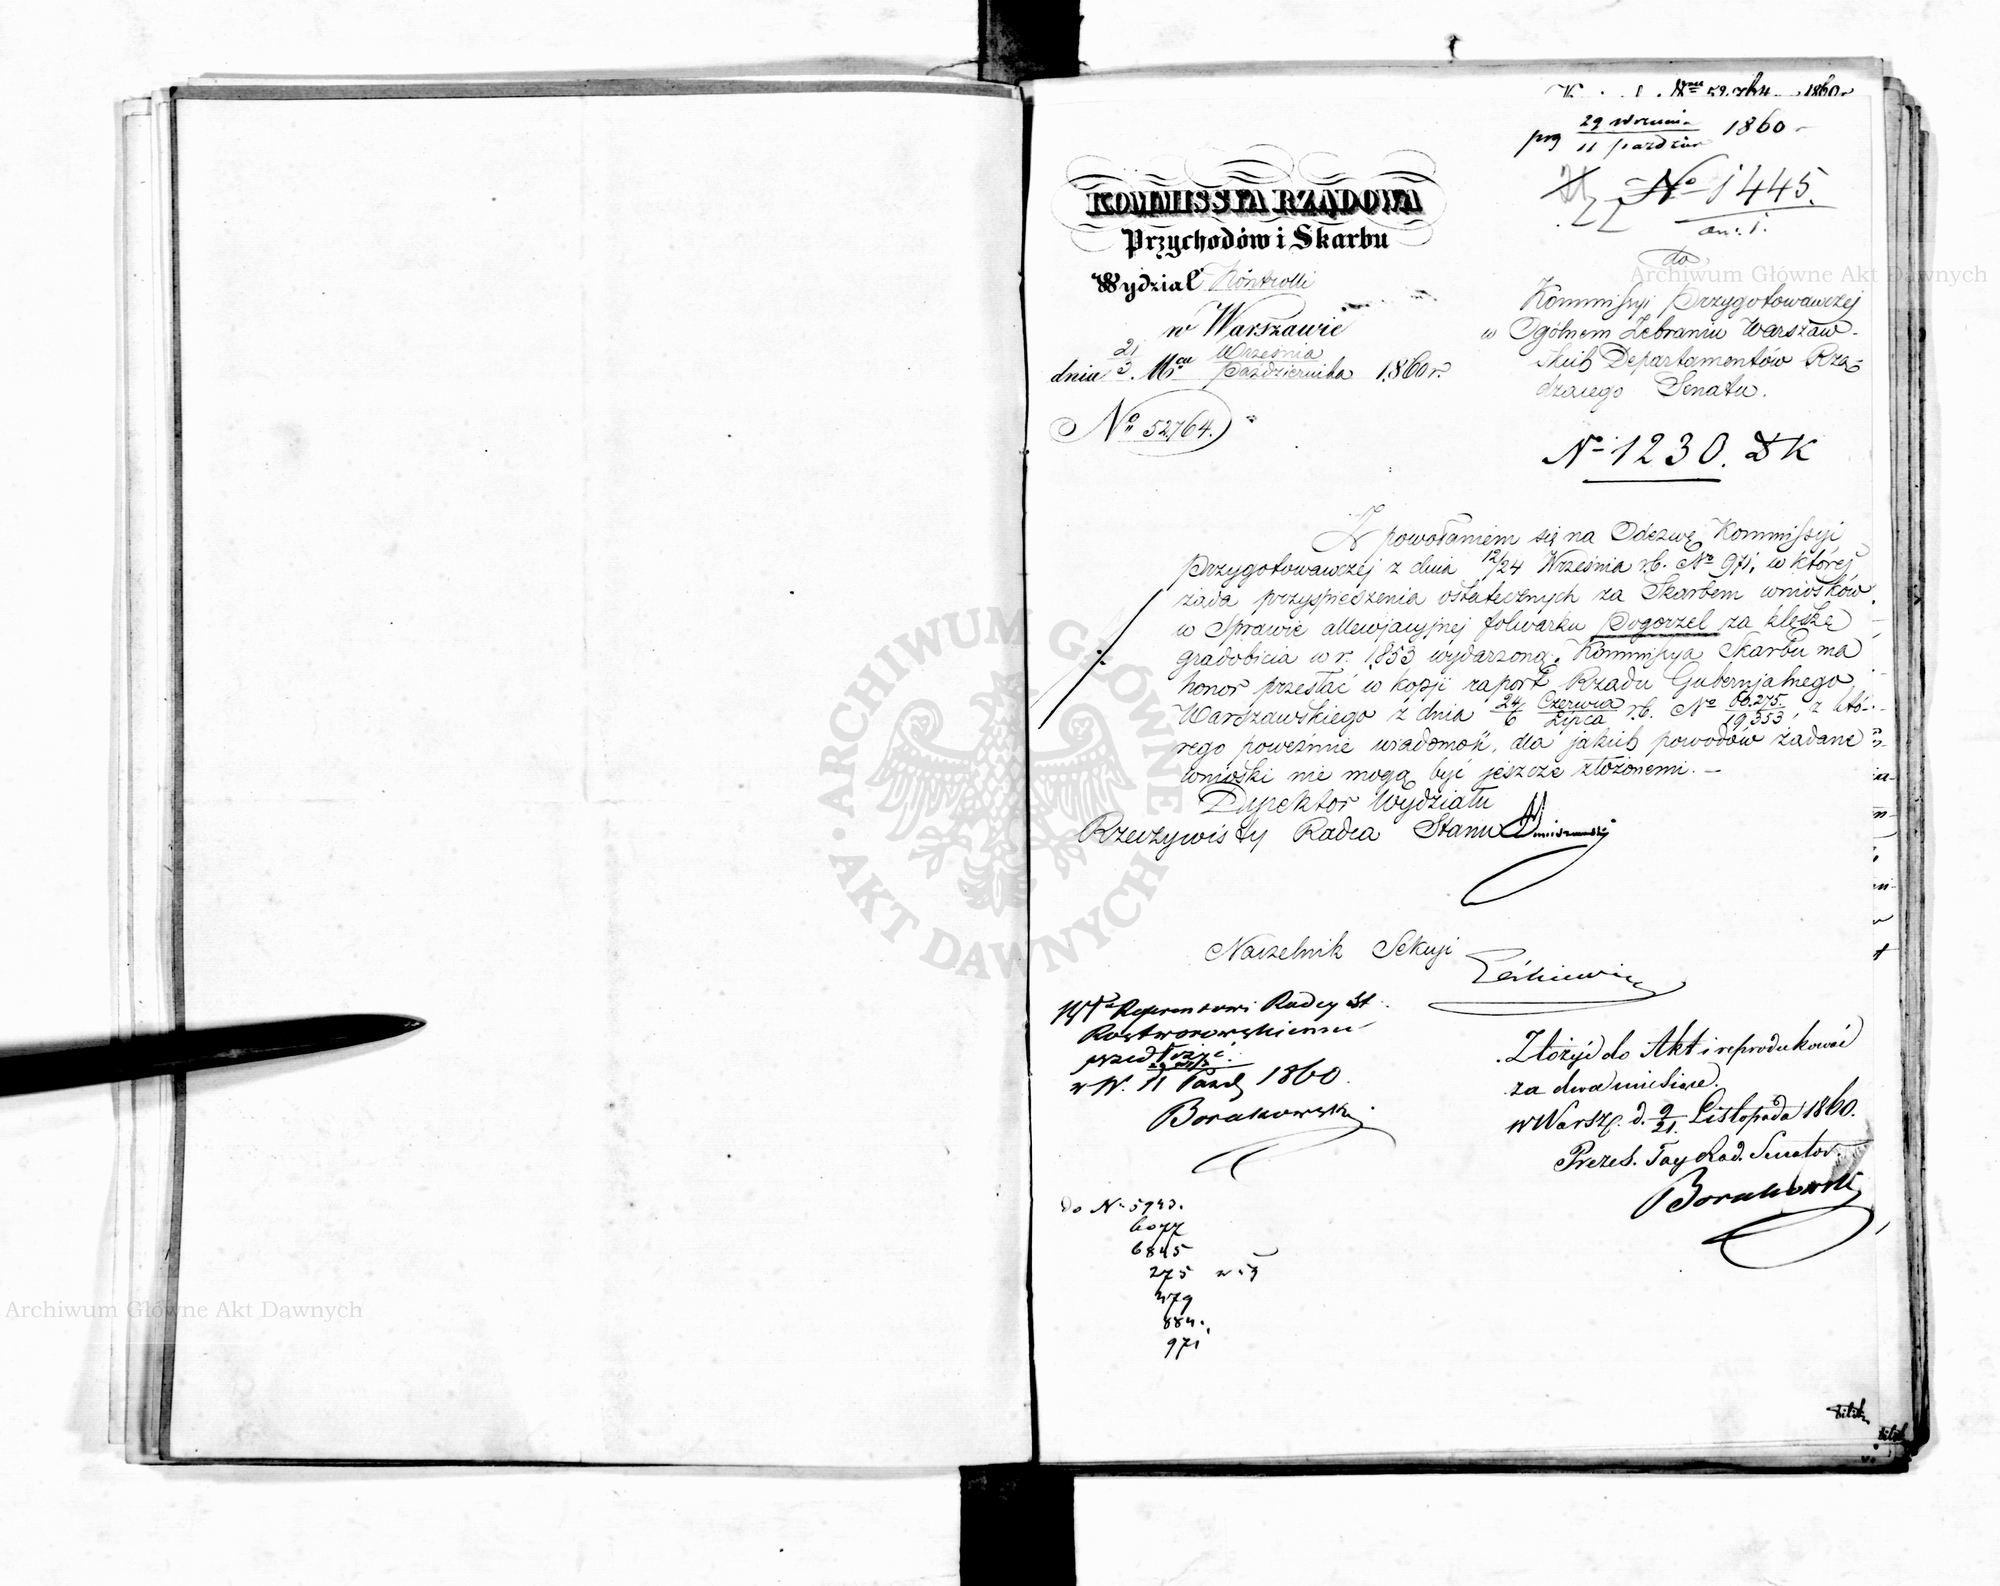 prz 29 września / 11 paździer 1860
KOMMISSYA RZĄDOWA
Przychodów i Skarbu
Wydział Kontrolli
w Warszawie
dnia 21/3 Mca Września / Października 1860 r.
No 52764.
No 1445.
do
Kommissyi Przygotowawczej
w Ogólnem Zebraniu Warszaw-
skich Departamentów Rzą-
dzącego Senatu.
No 1230.
Z powołaniem się na Odezwę Kommissyi
Przygotowawczej z dnia 12/24 Września r.b. No 971, w której
żąda przyspieszenia ostatecznych za Skarbem wniosków
w Sprawie allewjacyjnej folwarku Pogorzel za klęskę
gradobicia w r. 1853 wydarzoną, Kommissya Skarbu ma
honor przesłać w kopji raport Rządu Gubernjalnego
Warszawskiego z dnia 24/6 Czerwca/Lipca r.b. No 66.275/19.353, z któ-
rego poweźmie wiadomość, dla jakich powodów żądane
wnioski nie mogą być jeszcze złożonemi. —
Dyrektor Wydziału
Rzeczywisty Radca Stanu
Naczelnik Sekcyi
Radcy St.
Rostworowskiemu
przedłożyć.
w W. 11 Paźd 1860.
Borakowski
Złożyć do Akt i reprodukować
za dwa miesiące.
w Warsz. d. 9/21 Listopada 1860.
Prezes. Tay. Rad. Senator
Borakowski
do No 5943.
6077
6845
275
479
884.
971
Archiwum Główne Akt Dawnych
ARCHIWUM GŁÓWNE · AKT DAWNYCH ·
Archiwum Główne Akt Dawnych